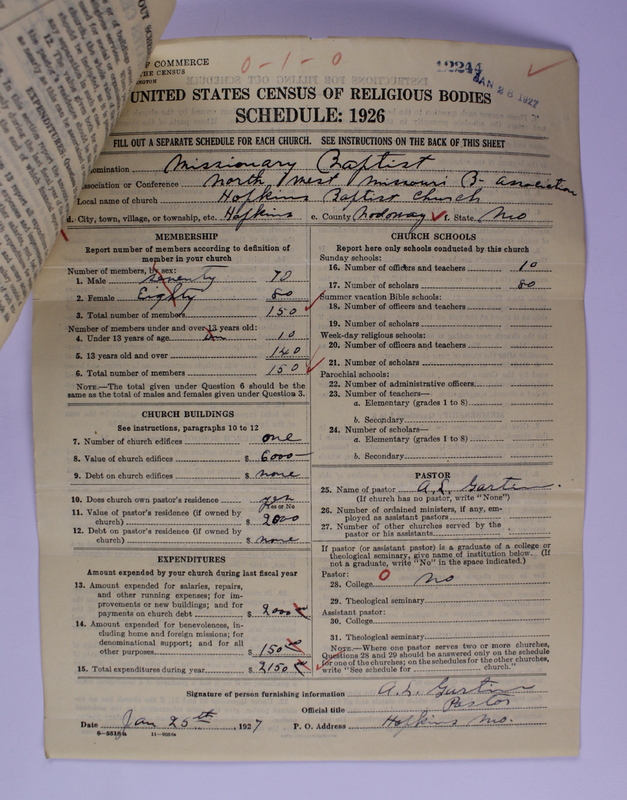 OF COMMERCE
THE CENSUS
0-1-0
12244
JAN 26 1927
UNITED STATES CENSUS OF RELIGIOUS BODIES
SCHEDULE: 1926
FILL OUT A SEPARATE SCHEDULE FOR EACH CHURCH. SEE INSTRUCTIONS ON THE BACK OF THIS SHEET
enomination Missionary Baptist
ssociation or Conference North West Missouri B- association
Local name of church Hopkins Baptist Church
d. City, town, village, or township, etc. Hopkins e. County Nodoway f. State Mo
MEMBERSHIP
Report number of members according to definition of
member in your church
Number of members, by sex:
1. Male seventy 70
2. Female Eighty 80
3. Total number of members 150
Number of members under and over 13 years old:
4. Under 13 years of age 10
5. 13 years old and over 140
6. Total number of members 150
NOTE.—The total given under Question 6 should be the
same as the total of males and females given under Question 3.
CHURCH BUILDINGS
See instructions, paragraphs 10 to 12
7. Number of church edifices one
8. Value of church edifices $ 6000
9. Debt on church edifices $ none
10. Does church own pastor's residence yes
Yes or No
11. Value of pastor's residence (if owned by
church) $ 2000
12. Debt on pastor's residence (if owned by
church) $ none
EXPENDITURES
Amount expended by your church during last fiscal year
13. Amount expended for salaries, repairs,
and other running expenses; for im-
provements or new buildings; and for
payments on church debt $ 2000
14. Amount expended for benevolences, in-
cluding home and foreign missions; for
denominational support; and for all
other purposes $ 150
15. Total expenditures during year $ 2150
CHURCH SCHOOLS
Report here only schools conducted by this church
Sunday schools:
16. Number of officers and teachers 10
17. Number of scholars 80
Summer vacation Bible schools:
18. Number of officers and teachers
19. Number of scholars
Week-day religious schools:
20. Number of officers and teachers
21. Number of scholars
Parochial schools:
22. Number of administrative officers
23. Number of teachers—
a. Elementary (grades 1 to 8)
b. Secondary
24. Number of scholars—
a. Elementary (grades 1 to 8)
b. Secondary
PASTOR
25. Name of pastor A. L. Gustin
(If church has no pastor, write "None")
26. Number of ordained ministers, if any, em-
ployed as assistant pastors
27. Number of other churches served by the
pastor or his assistants
If pastor (or assistant pastor) is a graduate of a college or
theological seminary, give name of institution below. (If
not a graduate, write "No" in the space indicated.)
Pastor:
28. College 0 no
29. Theological seminary
Assistant pastor:
30. College
31. Theological seminary
NOTE.—Where one pastor serves two or more churches,
Questions 28 and 29 should be answered only on the schedule
for one of the churches; on the schedules for the other churches,
write "See schedule for church."
Signature of person furnishing information A. L. Gustin
Official title Pastor
Date Jan 25th, 1927 P. O. Address Hopkins Mo.